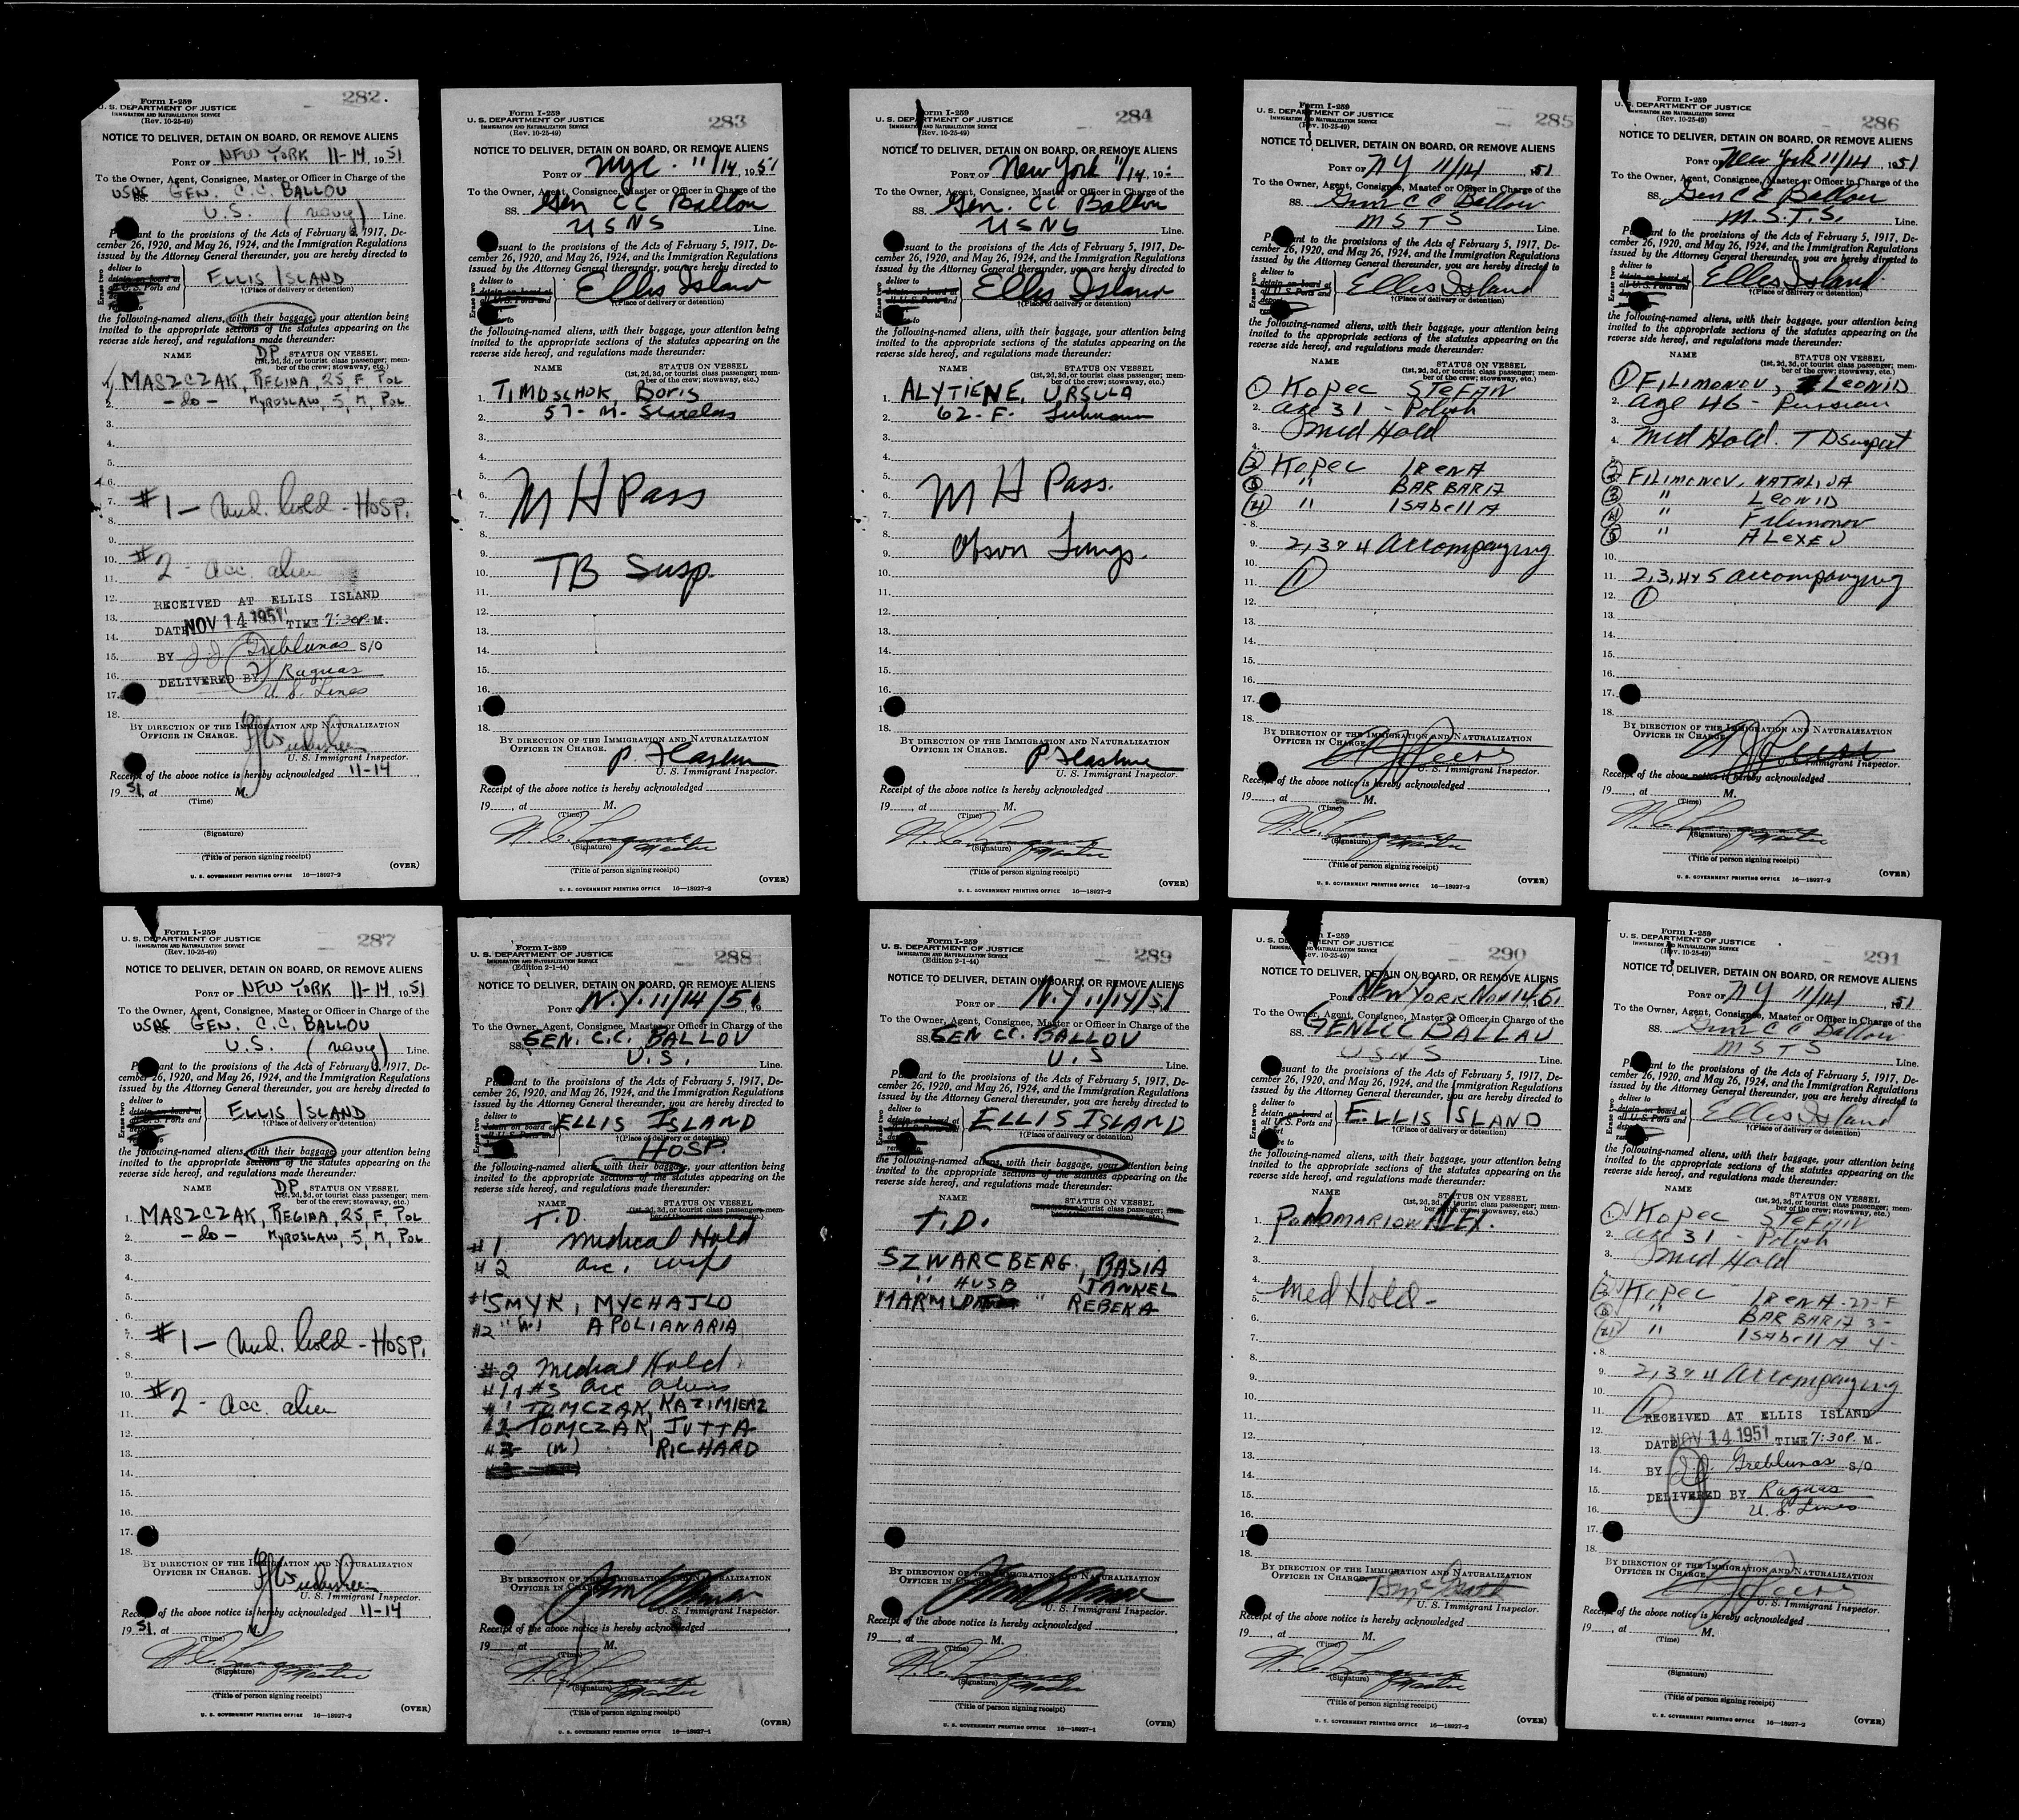 282.
Form I-259
U. S. DEPARTMENT OF JUSTICE
IMMIGRATION AND NATURALIZATION SERVICE
(Rev. 10-25-49)
NOTICE TO DELIVER, DETAIN ON BOARD, OR REMOVE ALIENS
PORT OF NEW YORK 11-14, 1951
To the Owner, Agent, Consignee, Master or Officer in Charge of the
SS. GEN. C.C. BALLOU
U.S. (navy) Line.
Pursuant to the provisions of the Acts of February 5, 1917, De-
cember 26, 1920, and May 26, 1924, and the Immigration Regulations
issued by the Attorney General thereunder, you are hereby directed to
Erase two
deliver to
detain on board at
all U. S. Ports and
ELLIS ISLAND
†(Place of delivery or detention)
the following-named aliens, with their baggage, your attention being
invited to the appropriate sections of the statutes appearing on the
reverse side hereof, and regulations made thereunder:
NAME DP STATUS ON VESSEL
(1st, 2d, 3d, or tourist class passenger; mem-
ber of the crew; stowaway, etc.)
1. MASZCZAK, REGINA, 25, F, POL
2. -do- MYROSLAW, 5, M, POL
3.
4.
5.
6.
7. #1 - Med. hold - HOSP.
8.
9.
10. #2 - acc. alien
11.
12. RECEIVED AT ELLIS ISLAND
13. DATE NOV 14 1951 TIME 7:30P. M.
14.
15. BY J.J. Greblunas S/O
16. DELIVERED BY Raguas
17. U.S. Lines
18.
BY DIRECTION OF THE IMMIGRATION AND NATURALIZATION
OFFICER IN CHARGE.
U. S. Immigrant Inspector.
Receipt of the above notice is hereby acknowledged 11-14
1951, at M.
(Time)
(Signature)
(Title of person signing receipt)
(OVER)
U. S. GOVERNMENT PRINTING OFFICE 16—18927-2
283
Form I-259
U. S. DEPARTMENT OF JUSTICE
IMMIGRATION AND NATURALIZATION SERVICE
(Rev. 10-25-49)
NOTICE TO DELIVER, DETAIN ON BOARD, OR REMOVE ALIENS
PORT OF NYC. 11/14, 1951
To the Owner, Agent, Consignee, Master or Officer in Charge of the
SS. Gen CC Ballou
USNS Line.
Pursuant to the provisions of the Acts of February 5, 1917, De-
cember 26, 1920, and May 26, 1924, and the Immigration Regulations
issued by the Attorney General thereunder, you are hereby directed to
Erase two
deliver to
detain on board at
all U. S. Ports and
Ellis Island
†(Place of delivery or detention)
the following-named aliens, with their baggage, your attention being
invited to the appropriate sections of the statutes appearing on the
reverse side hereof, and regulations made thereunder:
NAME STATUS ON VESSEL
(1st, 2d, 3d, or tourist class passenger; mem-
ber of the crew; stowaway, etc.)
1. TIMOSCHOK, Boris
2. 57 - M - Stateless
3.
4.
5.
6. M H Pass
7.
8.
9.
10. TB Susp.
11.
12.
13.
14.
15.
16.
18.
BY DIRECTION OF THE IMMIGRATION AND NATURALIZATION
OFFICER IN CHARGE.
U. S. Immigrant Inspector.
Receipt of the above notice is hereby acknowledged
19, at M.
(Time)
(Signature) Master
(Title of person signing receipt)
(OVER)
U. S. GOVERNMENT PRINTING OFFICE 16—18927-2
284
Form I-259
U. S. DEPARTMENT OF JUSTICE
IMMIGRATION AND NATURALIZATION SERVICE
(Rev. 10-25-49)
NOTICE TO DELIVER, DETAIN ON BOARD, OR REMOVE ALIENS
PORT OF New York 11/14, 19
To the Owner, Agent, Consignee, Master or Officer in Charge of the
SS. Gen. CC Ballou
USNS Line.
Pursuant to the provisions of the Acts of February 5, 1917, De-
cember 26, 1920, and May 26, 1924, and the Immigration Regulations
issued by the Attorney General thereunder, you are hereby directed to
Erase two
deliver to
detain on board at
all U. S. Ports and
Ellis Island
†(Place of delivery or detention)
the following-named aliens, with their baggage, your attention being
invited to the appropriate sections of the statutes appearing on the
reverse side hereof, and regulations made thereunder:
NAME STATUS ON VESSEL
(1st, 2d, 3d, or tourist class passenger; mem-
ber of the crew; stowaway, etc.)
1. ALYTIENE, URSULA
2. 62 - F.
3.
4.
5.
6. M H Pass.
7.
8.
9. Obsn Lungs.
10.
11.
12.
13.
14.
15.
16.
18.
BY DIRECTION OF THE IMMIGRATION AND NATURALIZATION
OFFICER IN CHARGE.
U. S. Immigrant Inspector.
Receipt of the above notice is hereby acknowledged
19, at M.
(Time)
(Signature) Master
(Title of person signing receipt)
(OVER)
U. S. GOVERNMENT PRINTING OFFICE 16—18927-2
285
Form I-259
U. S. DEPARTMENT OF JUSTICE
IMMIGRATION AND NATURALIZATION SERVICE
(Rev. 10-25-49)
NOTICE TO DELIVER, DETAIN ON BOARD, OR REMOVE ALIENS
PORT OF NY 11/14 51
To the Owner, Agent, Consignee, Master or Officer in Charge of the
SS. Genl C C Ballou
M S T S Line.
Pursuant to the provisions of the Acts of February 5, 1917, De-
cember 26, 1920, and May 26, 1924, and the Immigration Regulations
issued by the Attorney General thereunder, you are hereby directed to
Erase two
deliver to
detain on board at
all U. S. Ports and
Ellis Island
†(Place of delivery or detention)
the following-named aliens, with their baggage, your attention being
invited to the appropriate sections of the statutes appearing on the
reverse side hereof, and regulations made thereunder:
NAME STATUS ON VESSEL
(1st, 2d, 3d, or tourist class passenger; mem-
ber of the crew; stowaway, etc.)
1. Kopec STEFAN
2. age 31 - Polish
3. Med Hold
2 Kopec IRENA
3 " BARBARA
4 " ISAbellA
8.
9. 2, 3 & 4 Accompanying
10.
11. 1
12.
13.
14.
15.
16.
17.
18.
BY DIRECTION OF THE IMMIGRATION AND NATURALIZATION
OFFICER IN CHARGE.
U. S. Immigrant Inspector.
Receipt of the above notice is hereby acknowledged
19, at M.
(Time)
(Signature) Master
(Title of person signing receipt)
(OVER)
U. S. GOVERNMENT PRINTING OFFICE 16—18927-2
286
Form I-259
U. S. DEPARTMENT OF JUSTICE
IMMIGRATION AND NATURALIZATION SERVICE
(Rev. 10-25-49)
NOTICE TO DELIVER, DETAIN ON BOARD, OR REMOVE ALIENS
PORT OF New York 11/14 1951
To the Owner, Agent, Consignee, Master or Officer in Charge of the
SS. Gen C C Ballou
M.S.T.S. Line.
Pursuant to the provisions of the Acts of February 5, 1917, De-
cember 26, 1920, and May 26, 1924, and the Immigration Regulations
issued by the Attorney General thereunder, you are hereby directed to
Erase two
deliver to
detain on board at
all U. S. Ports and
Ellis Island
†(Place of delivery or detention)
the following-named aliens, with their baggage, your attention being
invited to the appropriate sections of the statutes appearing on the
reverse side hereof, and regulations made thereunder:
NAME STATUS ON VESSEL
(1st, 2d, 3d, or tourist class passenger; mem-
ber of the crew; stowaway, etc.)
1 FILIMONOV, LEONID
2. age 46 -
3.
4. Med Hold. TB suspect
2 FILIMONOV, NATALIJA
3 " LEONID
4 " Filimonov
5 " ALEXEJ
10.
11. 2, 3, 4 & 5 accompanying
12. 1
13.
14.
15.
16.
17.
18.
BY DIRECTION OF THE IMMIGRATION AND NATURALIZATION
OFFICER IN CHARGE.
U. S. Immigrant Inspector.
Receipt of the above notice is hereby acknowledged
19, at M.
(Time)
(Signature) Master
(Title of person signing receipt)
(OVER)
U. S. GOVERNMENT PRINTING OFFICE 16—18927-2
287
Form I-259
U. S. DEPARTMENT OF JUSTICE
IMMIGRATION AND NATURALIZATION SERVICE
(Rev. 10-25-49)
NOTICE TO DELIVER, DETAIN ON BOARD, OR REMOVE ALIENS
PORT OF NEW YORK 11-14, 1951
To the Owner, Agent, Consignee, Master or Officer in Charge of the
SS. GEN. C.C. BALLOU
U.S. (navy) Line.
Pursuant to the provisions of the Acts of February 5, 1917, De-
cember 26, 1920, and May 26, 1924, and the Immigration Regulations
issued by the Attorney General thereunder, you are hereby directed to
Erase two
deliver to
detain on board at
all U. S. Ports and
ELLIS ISLAND
†(Place of delivery or detention)
the following-named aliens, with their baggage, your attention being
invited to the appropriate sections of the statutes appearing on the
reverse side hereof, and regulations made thereunder:
NAME DP STATUS ON VESSEL
(1st, 2d, 3d, or tourist class passenger; mem-
ber of the crew; stowaway, etc.)
1. MASZCZAK, REGINA, 25, F, POL
2. -do- MYROSLAW, 5, M, POL
3.
4.
5.
6.
7. #1 - Med. hold - HOSP.
8.
9.
10. #2 - acc. alien
11.
12.
13.
14.
15.
16.
17.
18.
BY DIRECTION OF THE IMMIGRATION AND NATURALIZATION
OFFICER IN CHARGE.
U. S. Immigrant Inspector.
Receipt of the above notice is hereby acknowledged 11-14
1951, at M.
(Time)
(Signature) Master
(Title of person signing receipt)
(OVER)
U. S. GOVERNMENT PRINTING OFFICE 16—18927-2
288
Form I-259
U. S. DEPARTMENT OF JUSTICE
IMMIGRATION AND NATURALIZATION SERVICE
(Edition 2-1-44)
NOTICE TO DELIVER, DETAIN ON BOARD, OR REMOVE ALIENS
PORT OF N.Y. 11/14/51
To the Owner, Agent, Consignee, Master or Officer in Charge of the
SS. GEN. C.C. BALLOU
U.S. Line.
Pursuant to the provisions of the Acts of February 5, 1917, De-
cember 26, 1920, and May 26, 1924, and the Immigration Regulations
issued by the Attorney General thereunder, you are hereby directed to
Erase two
deliver to
detain on board at
all U. S. Ports and
ELLIS ISLAND
†(Place of delivery or detention)
HOSP.
the following-named aliens, with their baggage, your attention being
invited to the appropriate sections of the statutes appearing on the
reverse side hereof, and regulations made thereunder:
NAME STATUS ON VESSEL
(1st, 2d, 3d, or tourist class passenger; mem-
ber of the crew; stowaway, etc.)
T.D.
#1 Medical Hold
#2 acc. wife
#1 SMYK, MYCHAJLO
#2 " (w) APOLIANARIA
#2 Medical Hold
#1 & #3 acc aliens
#1 TOMCZAK, KAZIMIERZ
#2 TOMCZAK, JUTTA
#3 RICHARD
BY DIRECTION OF THE IMMIGRATION AND NATURALIZATION
OFFICER IN CHARGE.
U. S. Immigrant Inspector.
Receipt of the above notice is hereby acknowledged
19, at M.
(Time)
(Signature) Master
(Title of person signing receipt)
(OVER)
U. S. GOVERNMENT PRINTING OFFICE 16—18927-1
289
Form I-259
U. S. DEPARTMENT OF JUSTICE
IMMIGRATION AND NATURALIZATION SERVICE
(Edition 2-1-44)
NOTICE TO DELIVER, DETAIN ON BOARD, OR REMOVE ALIENS
PORT OF N.Y 11/14/51
To the Owner, Agent, Consignee, Master or Officer in Charge of the
SS. GEN CC. BALLOU
U.S Line.
Pursuant to the provisions of the Acts of February 5, 1917, De-
cember 26, 1920, and May 26, 1924, and the Immigration Regulations
issued by the Attorney General thereunder, you are hereby directed to
Erase two
deliver to
detain on board at
all U. S. Ports and
ELLIS ISLAND
†(Place of delivery or detention)
the following-named aliens, with their baggage, your attention being
invited to the appropriate sections of the statutes appearing on the
reverse side hereof, and regulations made thereunder:
NAME STATUS ON VESSEL
(1st, 2d, 3d, or tourist class passenger; mem-
ber of the crew; stowaway, etc.)
T.D.
SZWARCBERG, BASIA
" HUSB JANKEL
" REBEKA
BY DIRECTION OF THE IMMIGRATION AND NATURALIZATION
OFFICER IN CHARGE.
U. S. Immigrant Inspector.
Receipt of the above notice is hereby acknowledged
19, at M.
(Time)
(Signature) Master
(Title of person signing receipt)
(OVER)
U. S. GOVERNMENT PRINTING OFFICE 16—18927-1
290
Form I-259
U. S. DEPARTMENT OF JUSTICE
IMMIGRATION AND NATURALIZATION SERVICE
(Rev. 10-25-49)
NOTICE TO DELIVER, DETAIN ON BOARD, OR REMOVE ALIENS
PORT OF NEW YORK NOV 14, 51
To the Owner, Agent, Consignee, Master or Officer in Charge of the
SS. GENL CC BALLAU
USNS Line.
Pursuant to the provisions of the Acts of February 5, 1917, De-
cember 26, 1920, and May 26, 1924, and the Immigration Regulations
issued by the Attorney General thereunder, you are hereby directed to
Erase two
deliver to
detain on board at
all U. S. Ports and
ELLIS ISLAND
†(Place of delivery or detention)
the following-named aliens, with their baggage, your attention being
invited to the appropriate sections of the statutes appearing on the
reverse side hereof, and regulations made thereunder:
NAME STATUS ON VESSEL
(1st, 2d, 3d, or tourist class passenger; mem-
ber of the crew; stowaway, etc.)
1. PONOMARIOW ALEX.
2.
3.
4. Med Hold -
5.
6.
7.
8.
9.
10.
11.
12.
13.
14.
15.
16.
17.
18.
BY DIRECTION OF THE IMMIGRATION AND NATURALIZATION
OFFICER IN CHARGE.
U. S. Immigrant Inspector.
Receipt of the above notice is hereby acknowledged
19, at M.
(Time)
(Signature) Master
(Title of person signing receipt)
(OVER)
U. S. GOVERNMENT PRINTING OFFICE 16—18927-2
291
Form I-259
U. S. DEPARTMENT OF JUSTICE
IMMIGRATION AND NATURALIZATION SERVICE
(Rev. 10-25-49)
NOTICE TO DELIVER, DETAIN ON BOARD, OR REMOVE ALIENS
PORT OF NY 11/14 51
To the Owner, Agent, Consignee, Master or Officer in Charge of the
SS. Genl C C Ballou
M S T S Line.
Pursuant to the provisions of the Acts of February 5, 1917, De-
cember 26, 1920, and May 26, 1924, and the Immigration Regulations
issued by the Attorney General thereunder, you are hereby directed to
Erase two
deliver to
detain on board at
all U. S. Ports and
Ellis Island
†(Place of delivery or detention)
the following-named aliens, with their baggage, your attention being
invited to the appropriate sections of the statutes appearing on the
reverse side hereof, and regulations made thereunder:
NAME STATUS ON VESSEL
(1st, 2d, 3d, or tourist class passenger; mem-
ber of the crew; stowaway, etc.)
1 Kopec STEFAN
2. age 31 - Polish
3. Med Hold
2 Kopec IRENA - 27 - F
3 " BARBARA 3 -
4 " ISAbellA 4 -
8.
9. 2, 3 & 4 Accompanying
10.
11. 1 RECEIVED AT ELLIS ISLAND
12. DATE NOV 14 1951 TIME 7:30P. M.
13.
14. BY J.J. Greblunas S/O
15. DELIVERED BY Raguas
16. U.S. Lines
17.
18.
BY DIRECTION OF THE IMMIGRATION AND NATURALIZATION
OFFICER IN CHARGE.
U. S. Immigrant Inspector.
Receipt of the above notice is hereby acknowledged
19, at M.
(Time)
(Signature)
(Title of person signing receipt)
(OVER)
U. S. GOVERNMENT PRINTING OFFICE 16—18927-2